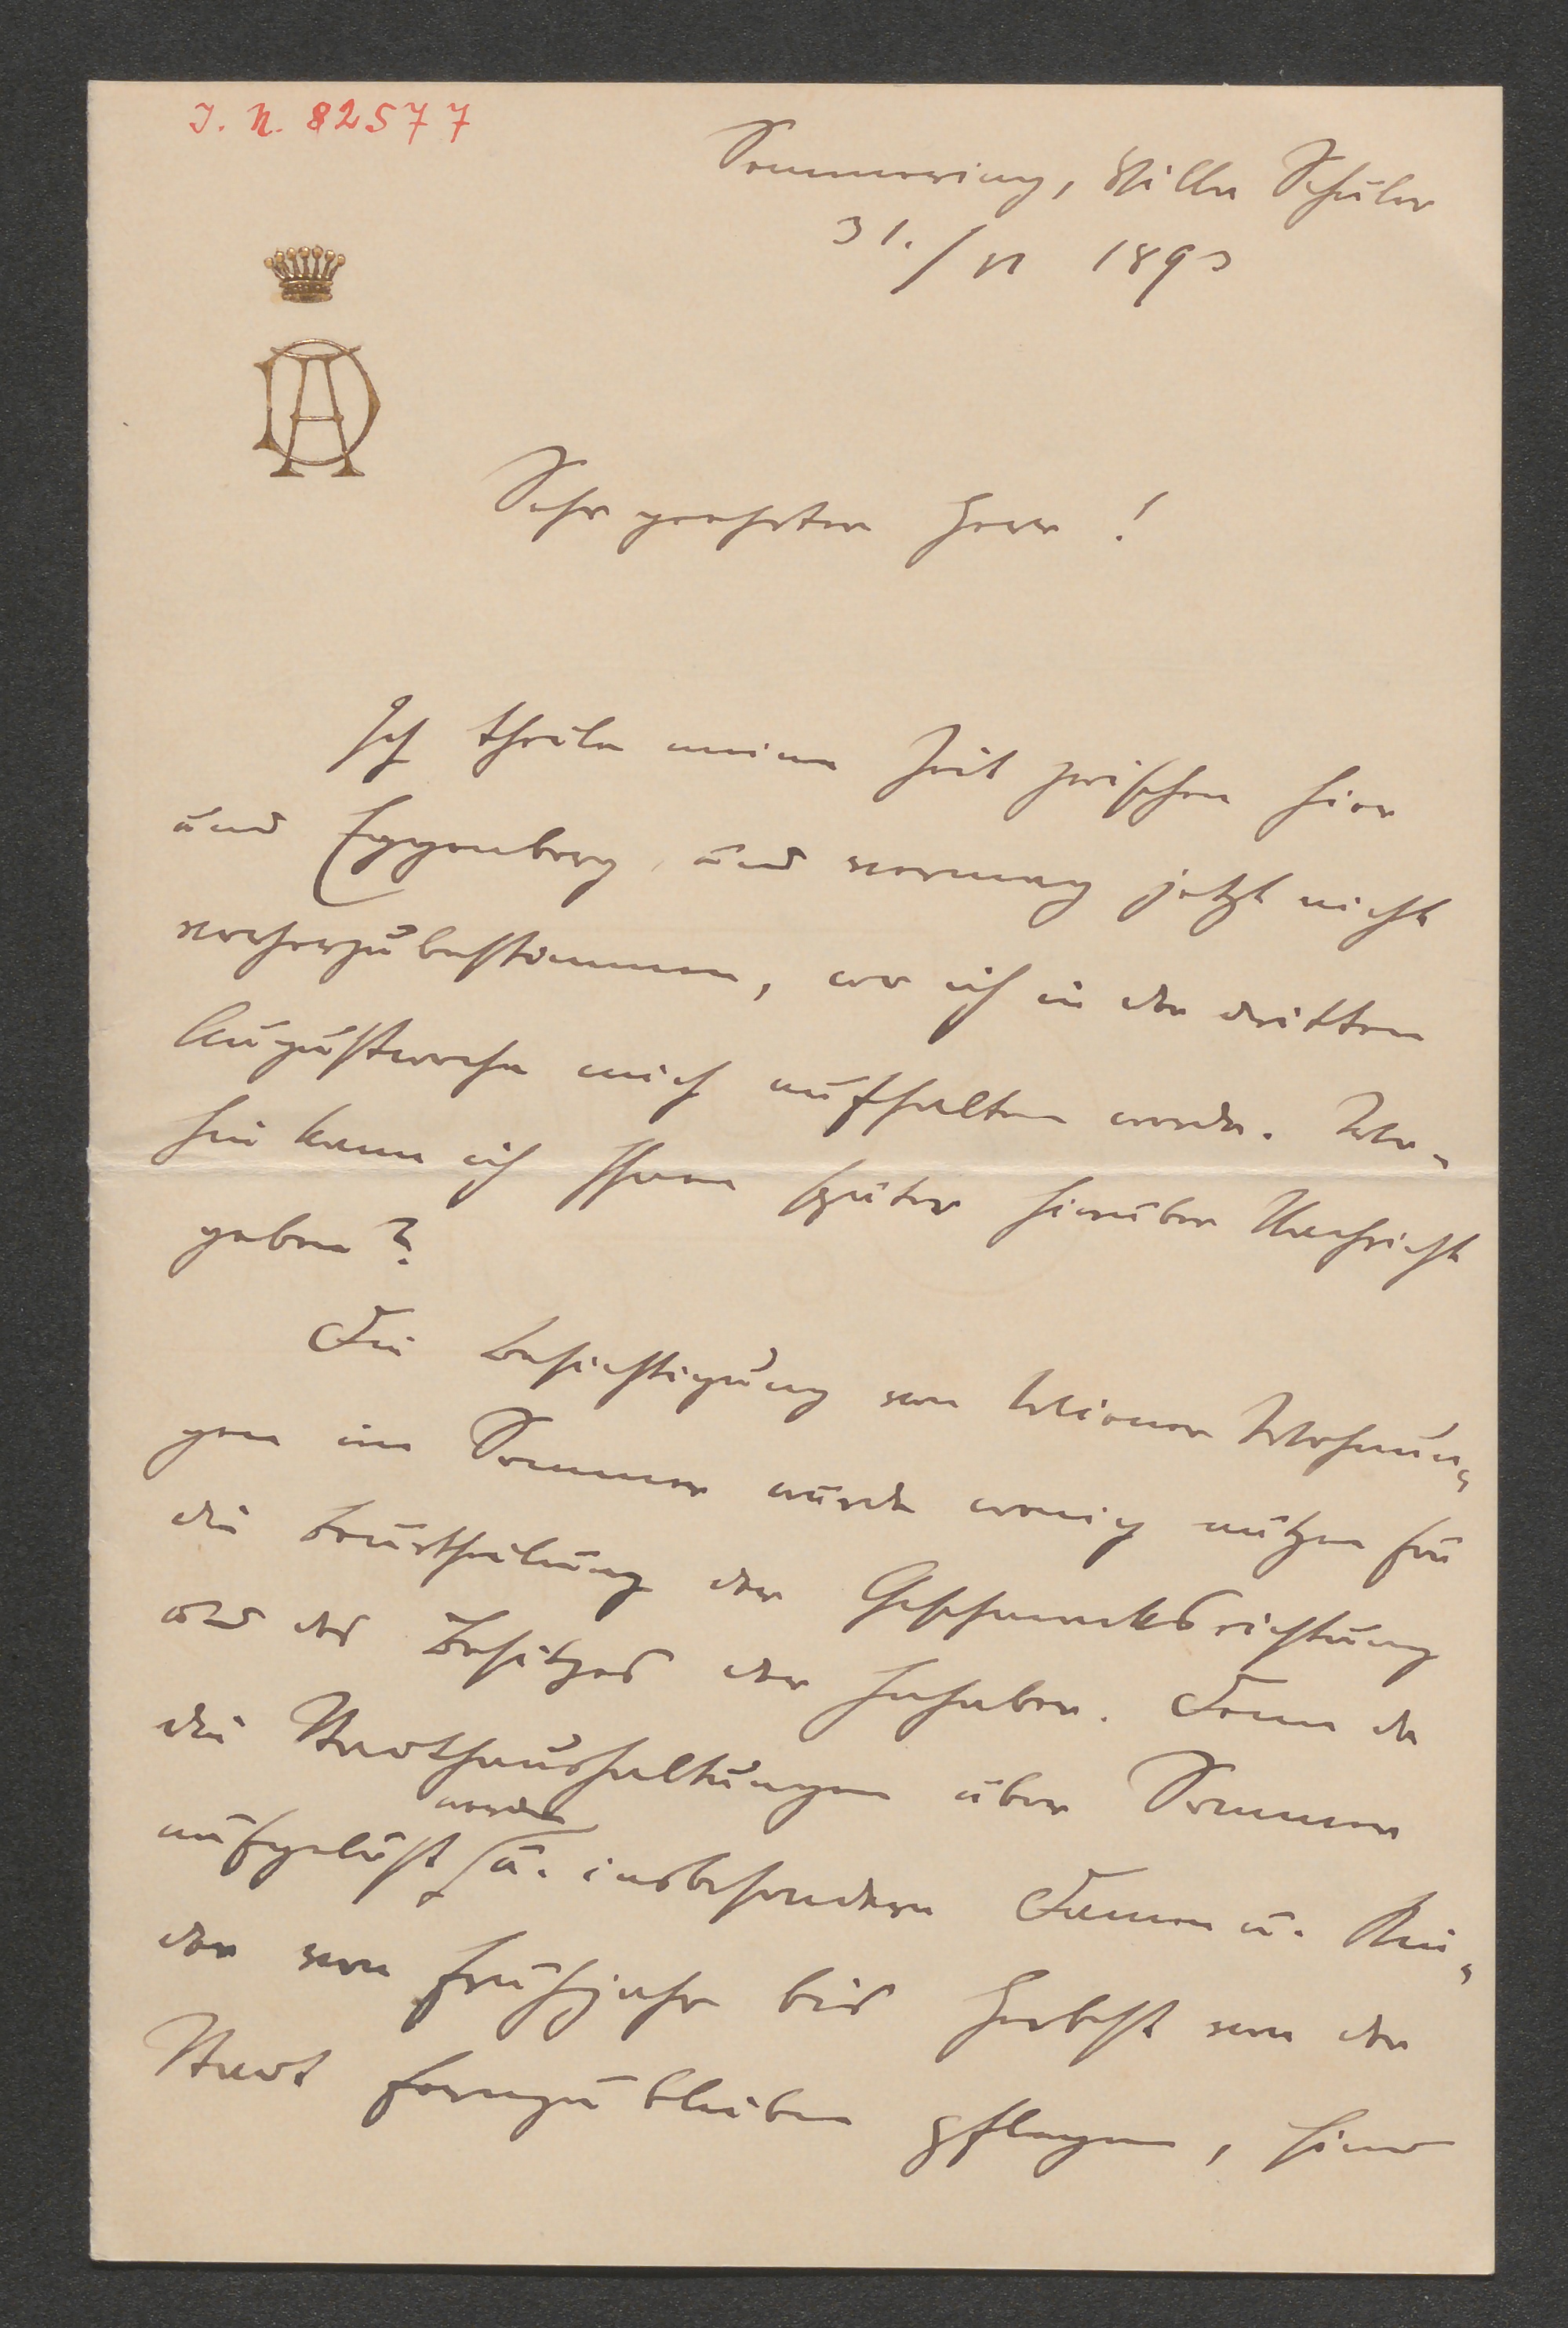 I. N. 82577
Semmering, Villa Schüler
31./VII 1893
DA
Sehr geehrter Herr!
Ich theile meine Zeit zwischen hier
und Eggenberg und vermag jetzt nicht
vorherzubestimmen, wo ich in der dritten
Augustwoche mich aufhalten werde. Wo-
hin kann ich Ihnen später hierüber Nachricht
geben?
Die Besichtigung von Wiener Wohnun-
gen im Sommer würde wenig nützen für
die Beurtheilung der Geschmacksrichtung
und des Besitzes der Inhaber. Denn da
die Stadthaushaltungen über Sommer
aufgelöst werden u. insbesondere Damen u. Kin-
der vom Frühjahr bis Herbst von der
Stadt fernzubleiben pflegen, sind